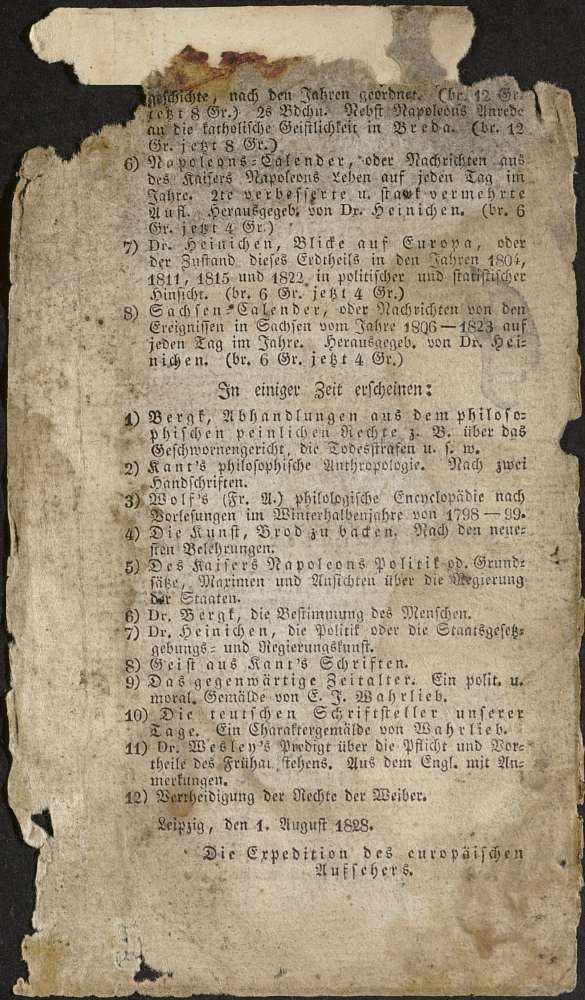 geschichte, nach den Jahren geordnet. (br. 12 Gr.
jetzt 8 Gr.) 2s Bdchn. Nebst Napoleons Anrede
an die katholische Geistlichkeit in Breda. (br. 12
Gr. jetzt 8 Gr.)
6) Napoleons-Calender, oder Nachrichten aus
des Kaisers Napoleons Leben auf jeden Tag im
Jahre. 2te verbesserte u. stark vermehrte
Aufl. Herausgegeb. von Dr. Heinichen. (br. 6
Gr. jetzt 4 Gr.)
7) Dr. Heinichen, Blicke auf Europa, oder
der Zustand dieses Erdtheils in den Jahren 1804,
1811, 1815 und 1822, in politischer und statistischer
Hinsicht. (br. 6 Gr. jetzt 4 Gr.)
8) Sachsen-Calender, oder Nachrichten von den
Ereignissen in Sachsen vom Jahre 1806—1823 auf
jeden Tag im Jahre. Herausgegeb. von Dr. Hei-
nichen. (br. 6 Gr. jetzt 4 Gr.)
In einiger Zeit erscheinen:
1) Bergk, Abhandlungen aus dem philoso-
phischen peinlichen Rechte z. B. über das
Geschwornengericht, die Todesstrafen u. s. w.
2) Kant's philosophische Anthropologie. Nach zwei
Handschriften.
3) Wolf's (Fr. A.) philologische Encyclopädie nach
Vorlesungen im Winterhalbenjahre von 1798—99.
4) Die Kunst, Brod zu backen. Nach den neue-
sten Belehrungen.
5) Des Kaisers Napoleons Politik od. Grund-
sätze, Maximen und Ansichten über die Regierung
der Staaten.
6) Dr. Bergk, die Bestimmung des Menschen.
7) Dr. Heinichen, die Politik oder die Staatsgesetz-
gebungs- und Regierungskunst.
8) Geist aus Kant's Schriften.
9) Das gegenwärtige Zeitalter. Ein polit. u.
moral. Gemälde von E. J. Wahrlieb.
10) Die teutschen Schriftsteller unserer
Tage. Ein Charaktergemälde von Wahrlieb.
11) Dr. Wesley's Predigt über die Pflicht und Vor-
theile des Frühaufstehens. Aus dem Engl. mit An-
merkungen.
12) Vertheidigung der Rechte der Weiber.
Leipzig, den 1. August 1828.
Die Expedition des europäischen
Aufsehers.